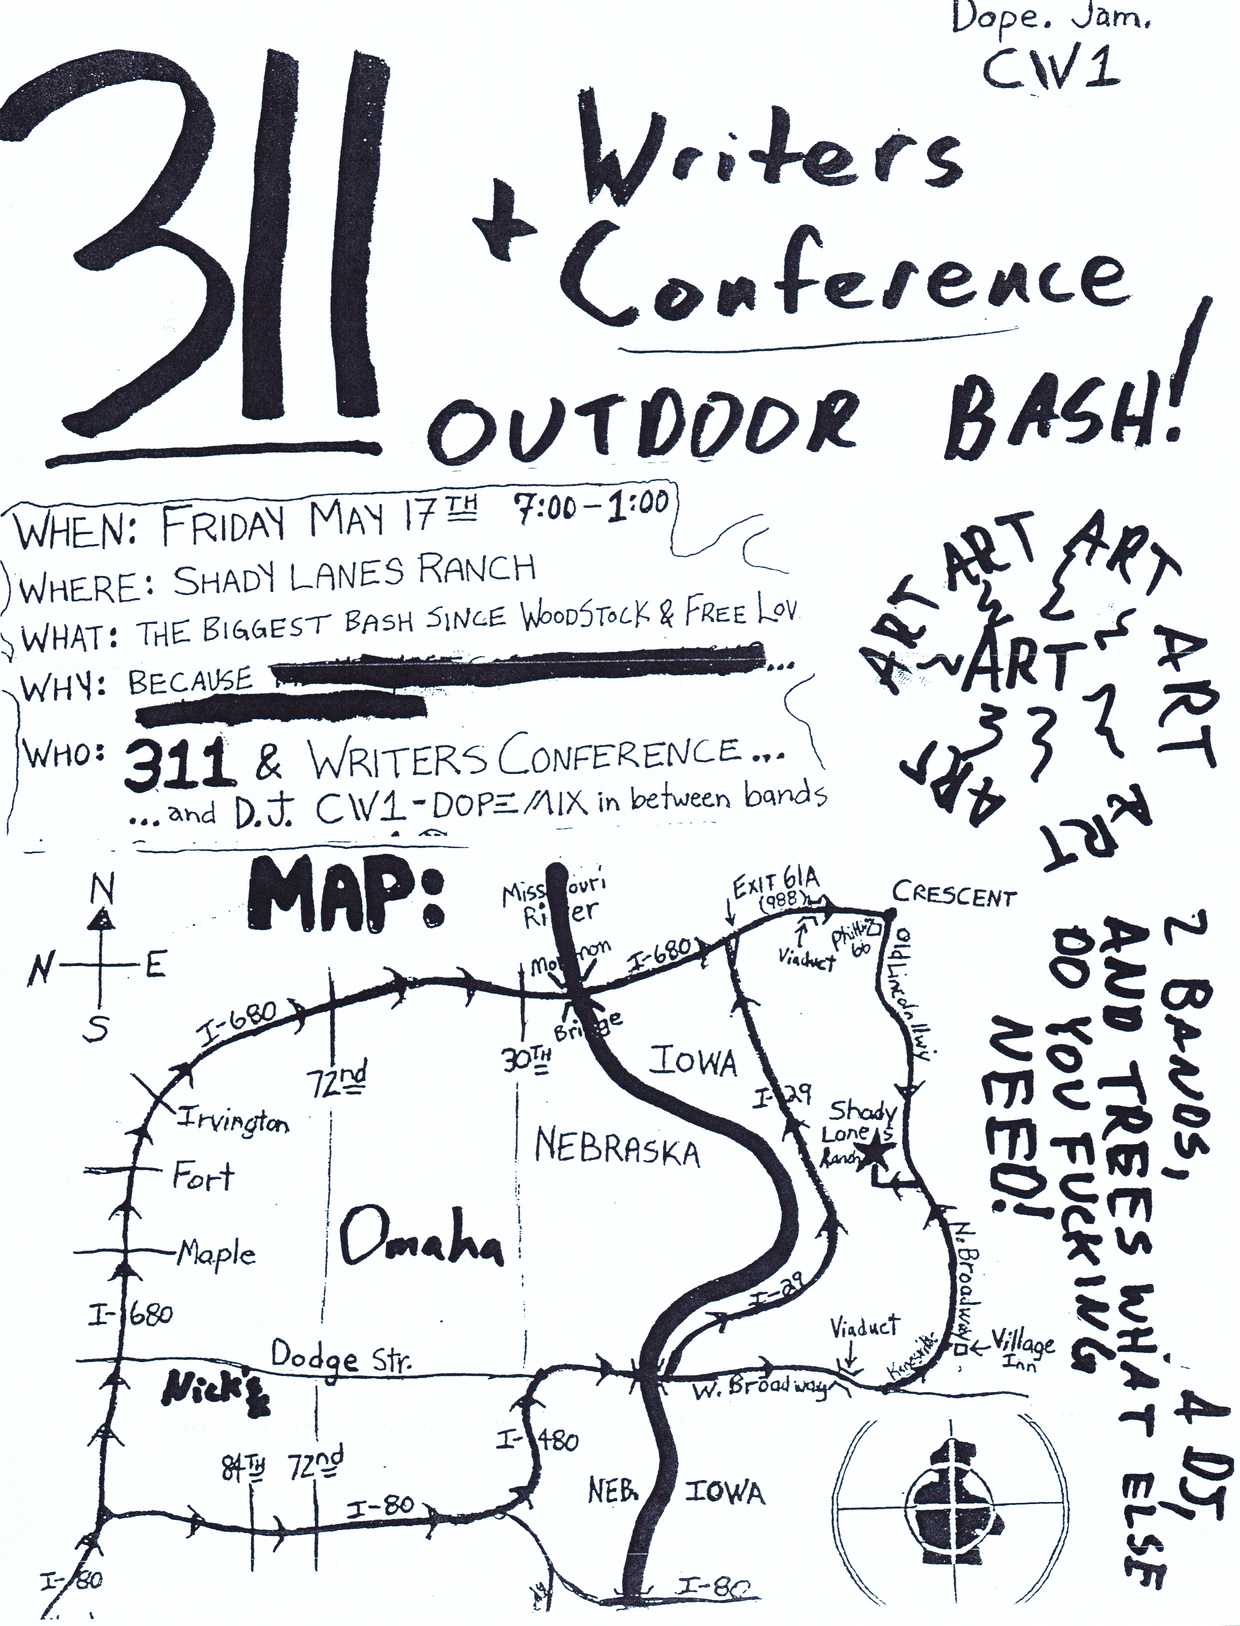 Dope. Jam.
CW1
311
+ Writers
Conference
OUTDOOR BASH!
WHEN: FRIDAY MAY 17TH 7:00-1:00
WHERE: SHADY LANES RANCH
WHAT: THE BIGGEST BASH SINCE WOODSTOCK & FREE LOV
WHY: BECAUSE ...
WHO: 311 & WRITERS CONFERENCE...
...and D.J. CW1-DOPE MIX in between bands
ART ART ART ART
ART
ART ART
2 BANDS, A DJ,
AND TREES WHAT ELSE
DO YOU FUCKING
NEED!
MAP:
N
N E
S
Missouri
River
Mormon
Bridge
EXIT 61A
(988)
CRESCENT
Viaduct
Phillips
66
Old Lincoln Hwy
I-680
I-680
72nd
30TH
IOWA
I-29
Shady
Lanes
Ranch
Irvington
NEBRASKA
Fort
Omaha
Maple
N. Broadway
I-680
I-29
Viaduct
Village
Inn
Dodge Str.
Nick's
W. Broadway
84TH 72nd
I-480
I-80
NEB. IOWA
I-80
I-80